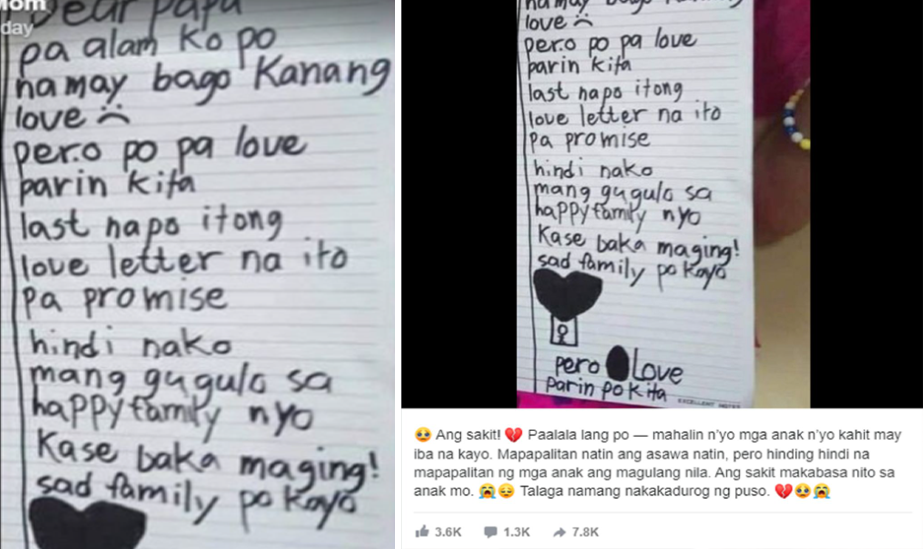 Mom
day
Dear Papa
pa alam ko po
na may bago Kanang
love
pero po pa love
parin kita
last napo itong
love letter na ito
pa promise
hindi nako
mang gugulo sa
happy family nyo
Kase baka maging!
sad family po kayo
na may bago Kanang
love
pero po pa love
parin kita
last napo itong
love letter na ito
pa promise
hindi nako
mang gugulo sa
happy family nyo
Kase baka maging!
sad family po kayo
pero Love
parin po kita
EXCELLENT NOTES
🥹 Ang sakit! 💔 Paalala lang po — mahalin n'yo mga anak n'yo kahit may
iba na kayo. Mapapalitan natin ang asawa natin, pero hinding hindi na
mapapalitan ng mga anak ang magulang nila. Ang sakit makabasa nito sa
anak mo. 😭😔 Talaga namang nakakadurog ng puso. 💔🥹😭
3.6K 1.3K 7.8K